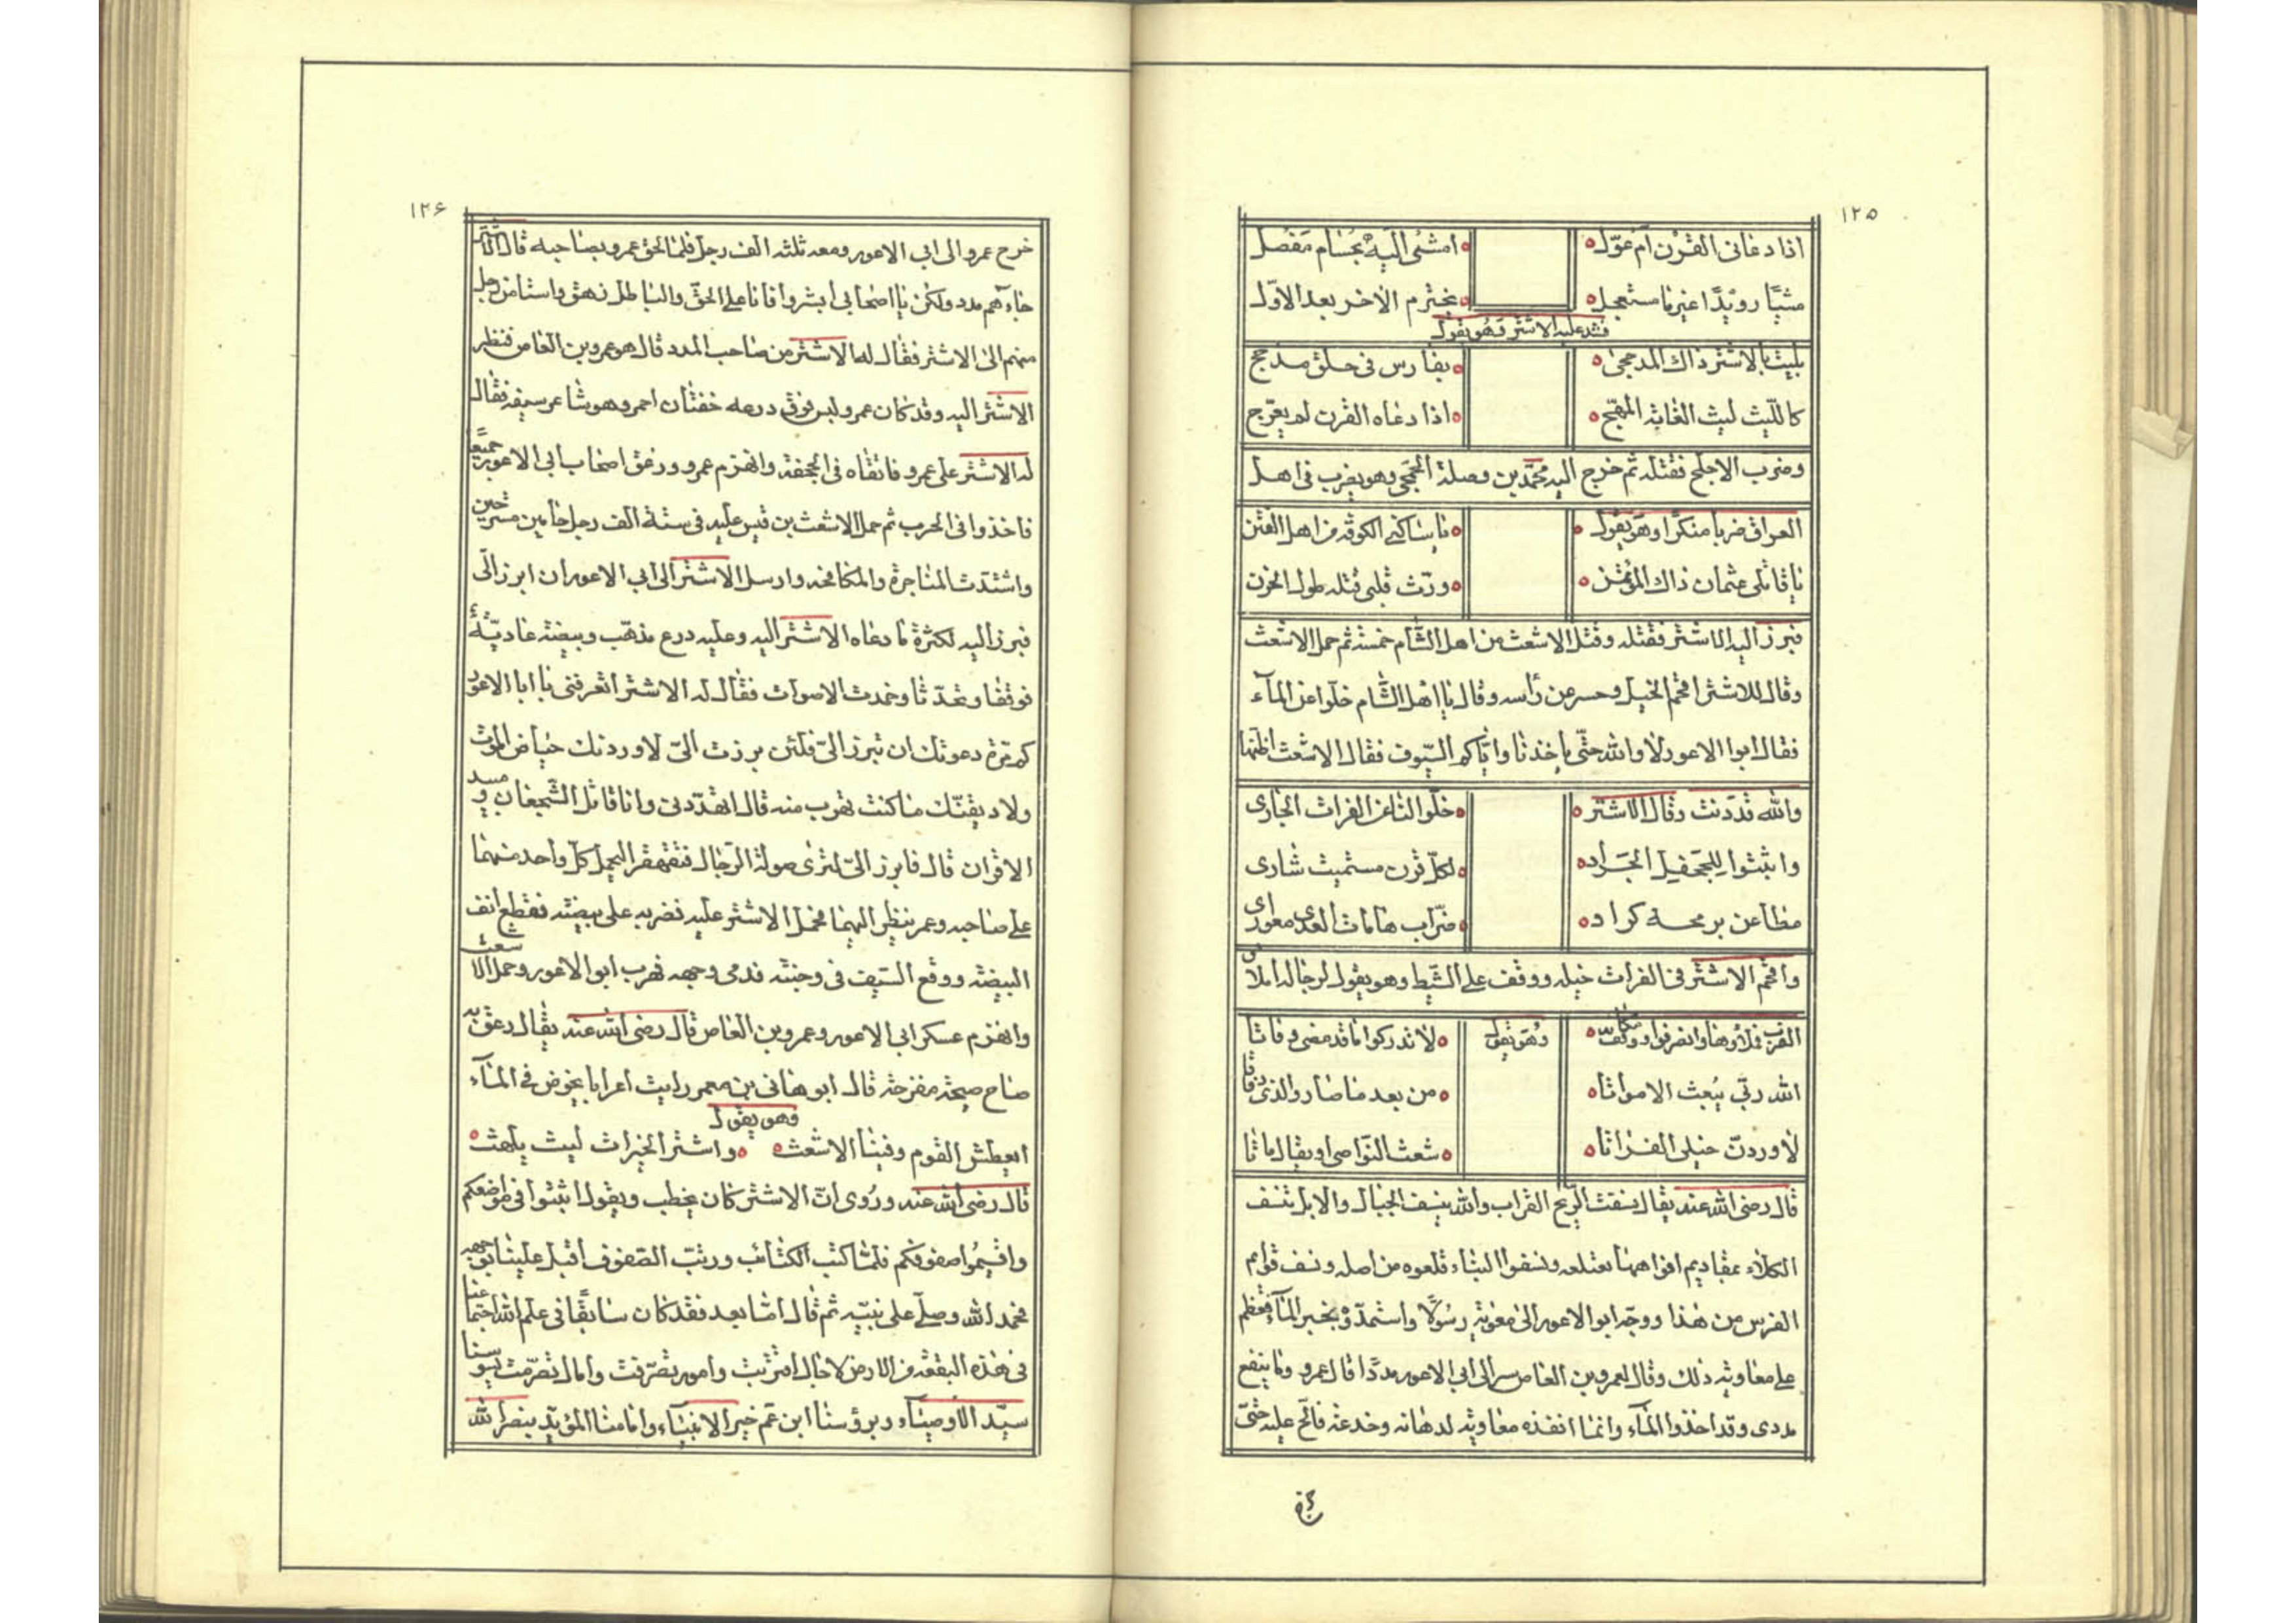 ١٢٥
اذا دعانى القرن ام عوّل امشى اليه بحسام مفصل
مشيًا رويدًا غير ما مستعجل يخترم الاخر بعد الاوّل
فشد عليه الاشتر وهو يقول
بليت بالاشتر ذاك المذحجى بفارس فى حلق مدجج
كالليث ليث الغابة المهيّج اذا دعاه القرن لم يعرّج
وضرب الاجلح فقتله ثم خرج اليه محمّد بن وصلة الجمحى وهو يضرب فى اهل
العراق ضربا منكرا وهو يقول يا ساكنى الكوفة من اهل الفتن
يا قاتلى عثمان ذاك المؤتمن ورّث قلبى قتله طول الحزن
فبرز اليه الاشتر فقتله وقتل الاشعث من اهل الشّام خمسة ثم حمل الاشعث
وقال للاشتر اقحم الخيل وحسر عن رأسه وقال يا اهل الشّام خلّوا عن المآء
فقال ابوا الاعور لا والله حتّى ياخذنا وايّاكم السّيوف فقال الاشعث اظنها
والله قد دنت وقال الاشتر خلّوا لنا عن الفرات الجارى
واثبتوا للجحفل الجرّاد لكلّ قرن مستميت شارى
مطاعن برمحه كراد ضرّاب هامات العدى
واقحم الاشتر فى الفرات خيله ووقف على الشّط وهو يقول لرجاله املا
القرب فملاوها وانصرفوا ووقف وهو يقول لا تدركوا ما قد مضى وفاتا
الله ربّى يبعث الامواتا من بعد ما صاروا لذى
لاوردنّ خيلى الفراتا شعث النّواصى او يقال ماتا
قال رضى الله عنه يقال ينسفت الرّيح التراب والله ينسف الجبال والابل تنسف
الكلاء بمقاديم افواهها تقتلعه ونسفوا البناء قلعوه من اصله ونسف قوايم
الفرس من هذا ووجّه ابوا الاعور الى معوية رسولًا واستمدّه بخبر المآء فعظم
على معاوية ذلك وقال لعمرو بن العاص سر الى ابى الاعور مددًا قال عمرو وما ينفع
مددى وقد اخذوا المآء وانما انفذه معاوية لدهائه وخدعته فالحّ عليه حتّى
١٢۶
خرج عمرو الى ابى الاعور ومعه ثلثه الف رجل فلما لحق عمرو بصاحبه قال
جاءهم مدد ولكن يا اصحابى ابشروا فانا على الحقّ والباطل زهق واستامن رجل
منهم الى الاشتر فقال له الاشتر من صاحب المدد قال هو عمرو بن العاص فنظر
الاشتر اليه وقد كان عمرو لبس فوق درعه خفتان احمر وهو شاعر سيفه فقال
له الاشتر على عمرو فاتقاه فى الجحفة وانهزم عمرو وزعق اصحاب ابى الاعور جميعًا
فاخذوا فى الحرب ثم حمل الاشعث بن قيس عليه فى ستة الف رجل
واشتدّت المناجزة والمكافحة وارسل الاشتر الى ابى الاعور ان ابرز الىّ
فبرز اليه لكثرة ما دعاه الاشتر اليه وعليه درع مذهّب وبيضة عاديّة
فوقفا وتحدّثا وخمدت الاصوات فقال له الاشتر اتعرفنى يا ابا الاعور
كم مرّة دعوتك ان تبرز الىّ فلئن برزت الىّ لاوردنك حياض الموت
ولاذيقنّك ما كنت تهرب منه قال اتهدّدنى وانا قاتل الشّجعان ومبيد
الاقران قال فابرز الىّ لترى صولة الرّجال فتقهقر اليحمل كلّ واحد منهما
على صاحبه وعمر ينظر اليهما فحمل الاشتر عليه فضربه على بيضته فقطع انف
البيضة ووقع السّيف فى وجنته فدمى وجهه فهرب ابوا الاعور وحمل الاشعث
وانهزم عسكر ابى الاعور وعمرو بن العاص قال رضى الله عنه يقال زعق به
صاح صيحة مفزعة قال ابو هانى بن معمر رايت اعرابا يخوض فى المآء
وهو يقول
ايعطش القوم وفينا الاشعث واشتر الخيرات ليث يلهث
قال رضى الله عنه وروى انّ الاشتر كان يخطب ويقول اثبتوا فى مواضعكم
واقيموا صفوفكم فلمّا كتب الكتائب ورتب الصّفوف اقبل علينا بوجهه
فحمد الله وصلّى على نبيّه ثم قال امّا بعد فقد كان سابقًا فى علم الله اجتماعنا
فى هذه البقعة من الارض لاجال اقتربت وامور تصرّفت وامال تصرّمت يسوسنا
سيّد الاوصيآء ويرؤسنا ابن عمّ خير الانبيآء وانا منا المؤيّد بنصر الله